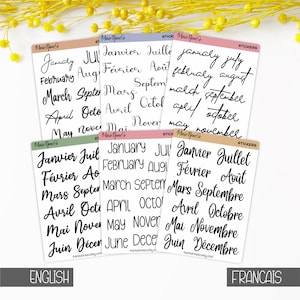 STICKERS
January Jul
February Aug
March Septe
April Octo
May Nove
Janvier Juille
Février Août
Septem
Avril Octob
Novem
STICKERS
january july
february august
march september
april october
may november
Janvier Jui
Février Ao
Mars Septe
Avril Octo
Mai Nove
Juin Décen
January July
February Augus
March Septem
April Octob
May Novem
June Decem
STICKERS
Janvier Juillet
Février Août
Mars Septembre
Avril Octobre
Mai Novembre
Juin Décembre
ENGLISH
FRANCAIS